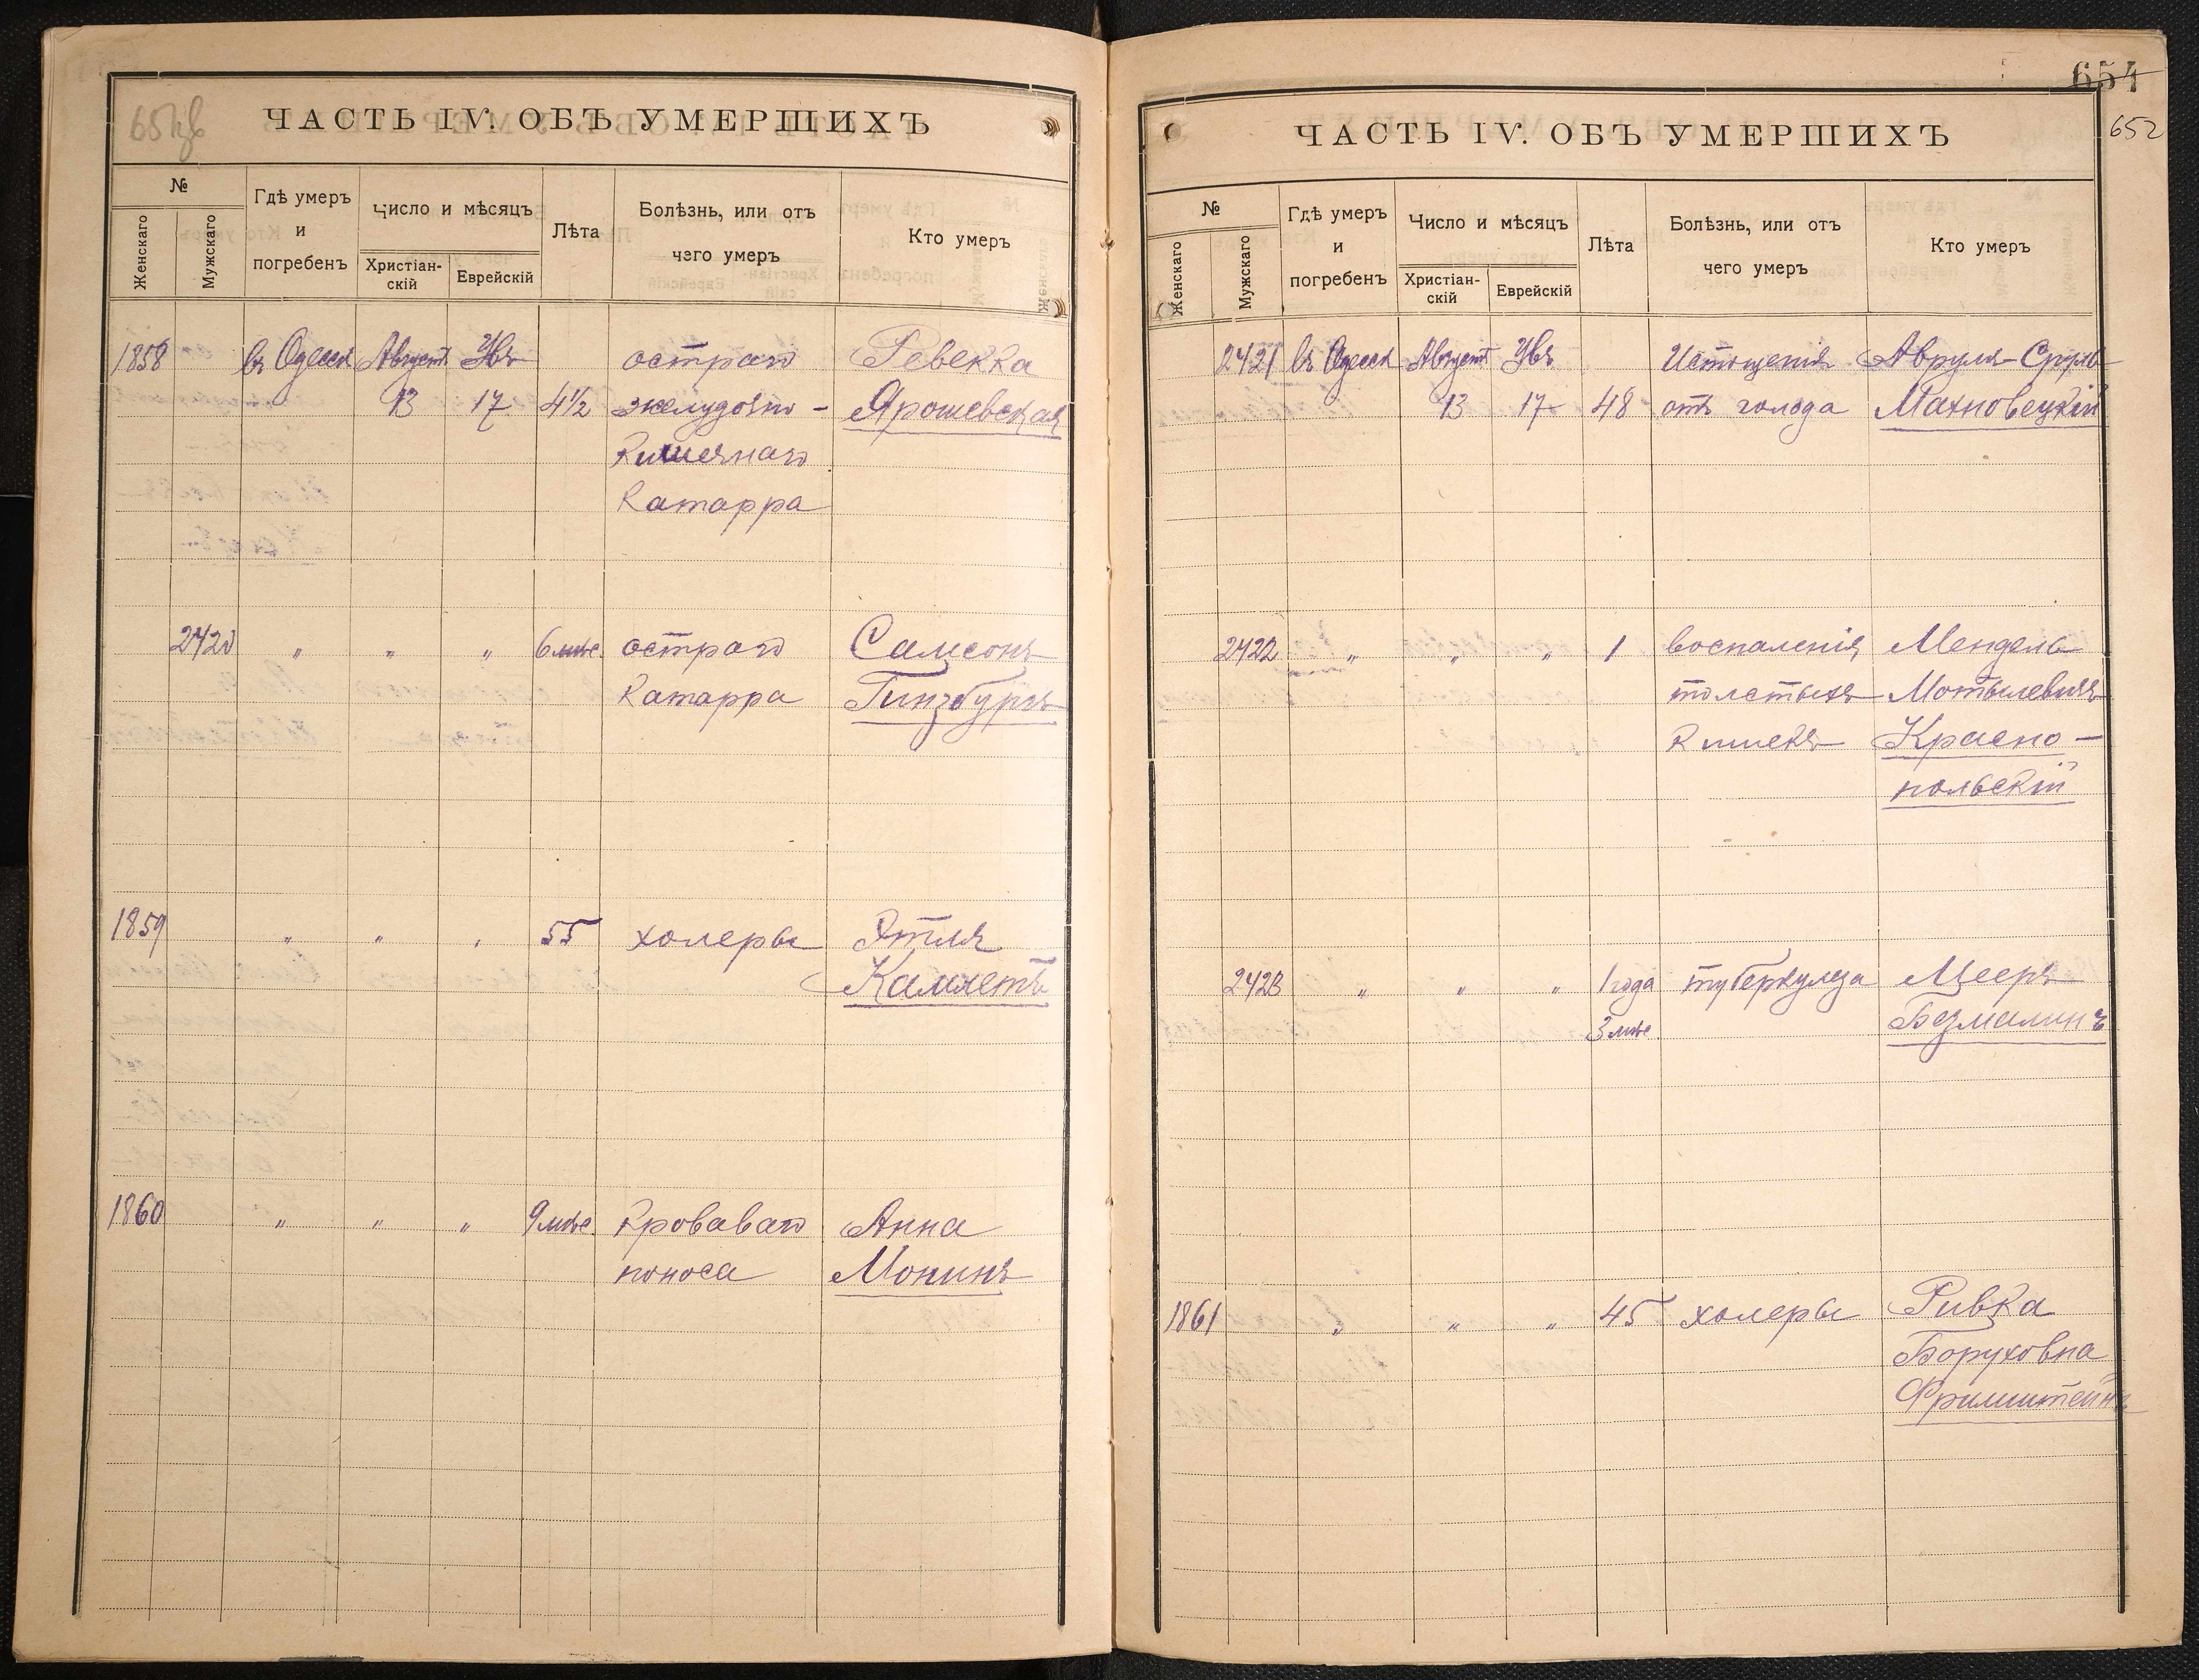 ЧАСТЬ IV. ОБЪ УМЕРШИХЪ
№
Женскаго
Мужскаго
Гдѣ умеръ
и
погребенъ
Число и мѣсяцъ
Христіан-
скій
Еврейскій
Лѣта
Болѣзнь, или отъ
чего умеръ
Кто умеръ
1858 въ Одессѣ Августъ Увъ остраго Ревекка
13 17 4½ желудочно- Ярошевская
Кишечнаго
Катарра
2420 " " " 6 мѣс. остраго Самсонъ
Катарра Гинзбургъ
1859 " " " 55 холеры Этля
Камметъ
1860 " " " 9 мѣс. Кроваваго Анна
поноса Монинъ
654
652
ЧАСТЬ IV. ОБЪ УМЕРШИХЪ
№
Женскаго
Мужскаго
Гдѣ умеръ
и
погребенъ
Число и мѣсяцъ
Христіан-
скій
Еврейскій
Лѣта
Болѣзнь, или отъ
чего умеръ
Кто умеръ
2421 въ Одессѣ Августъ Увъ Истощенія Авруля-Сруль
13 17 48 отъ голода Махновецкій
2422 " " " 1 воспаленія Мендель
толстыхъ Мотылевичъ
Кишекъ Красно-
польскій
2423 " " " 1 года туберкулеза Мееръ
3 мѣс. Безмалинъ
1861 " " " 45 холеры Ривка
Боруховна
Фримштейнъ